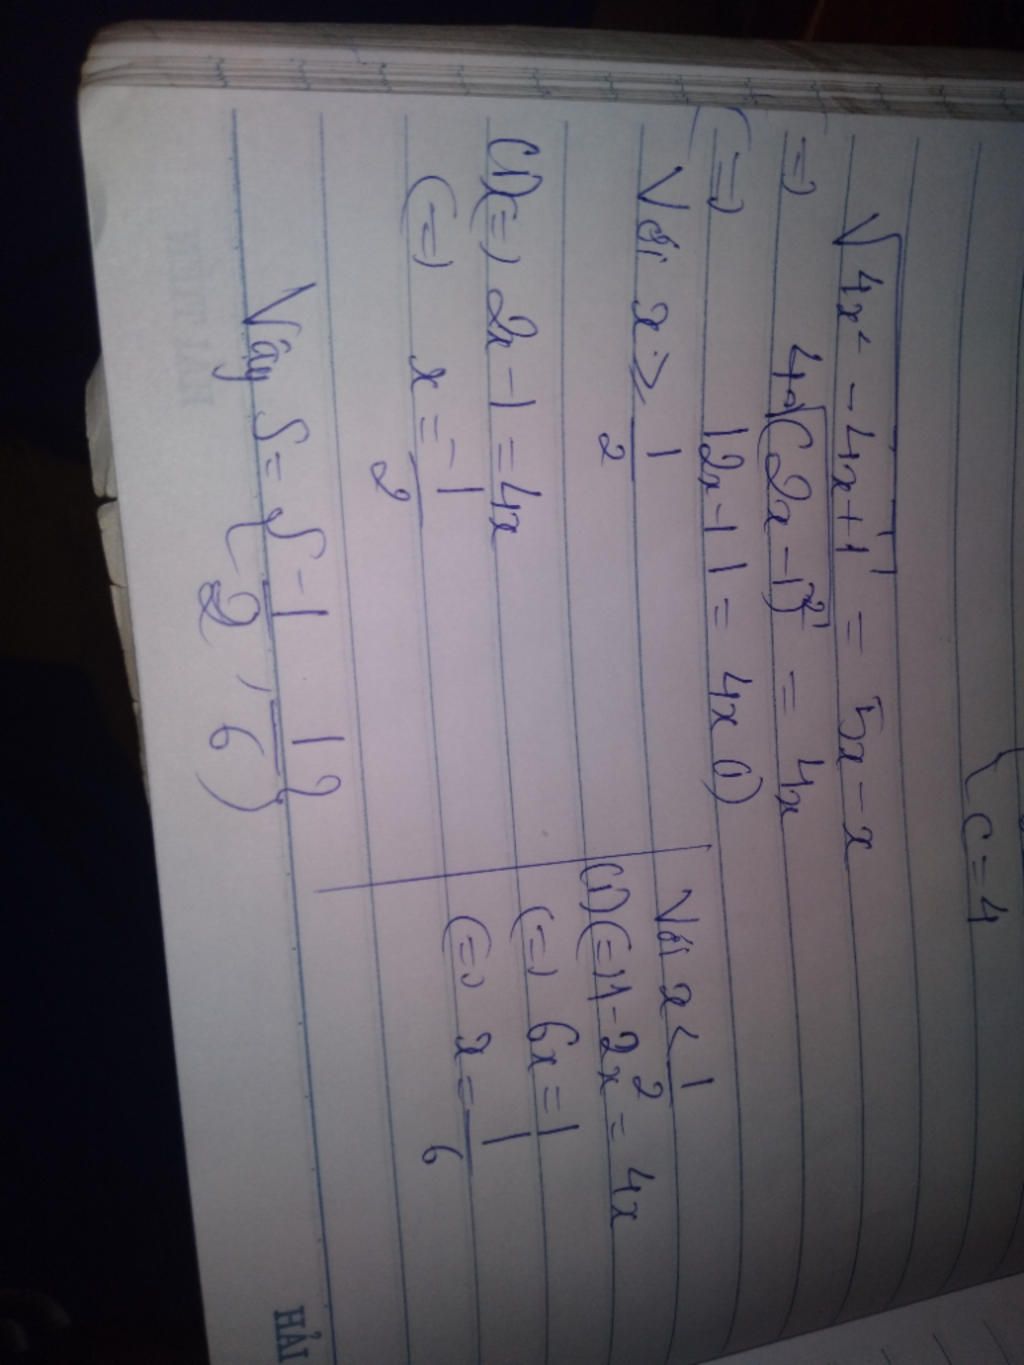 c = 4
√4x² - 4x + 1 = 5x - x
=> √(2x - 1)² = 4x
(=) |2x - 1| = 4x (1)
Với x ≥ 1/2
(1) (=) 2x - 1 = 4x
(=) x = -1/2
Với x < 1/2
(1) (=) 1 - 2x = 4x
(=) 6x = 1
(=) x = 1/6
Vậy S = { -1/2, 1/6 }
HẢI